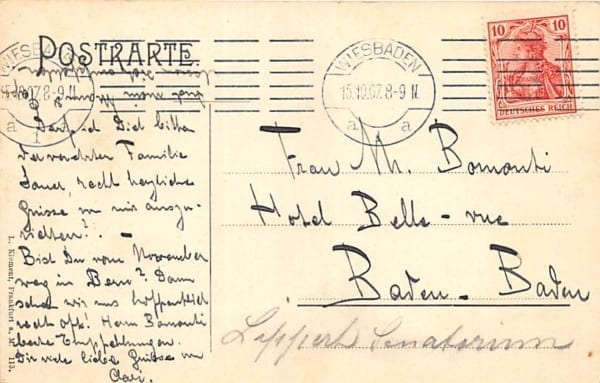 POSTKARTE.
WIESBADEN
15.10.07. 8-9 N.
a a
WIESBADEN
15.10.07. 8-9 N.
a
10 10
DEUTSCHES REICH
Darf ich Dich bitten
der verehrten Familie
Sauer, recht herzliche
Grüsse von mir auszu-
richten? -
Bist Du vom November
weg in Bern? Dann
sehen wir uns hoffentlich
recht oft! Herrn Bomonti
beste Empfehlungen.
Dir viele liebe Grüsse von
Frau M. Bomonti
Hotel Belle-vue
Baden-Baden
Sanatorium
L. Klement, Frankfurt a. M. 115.